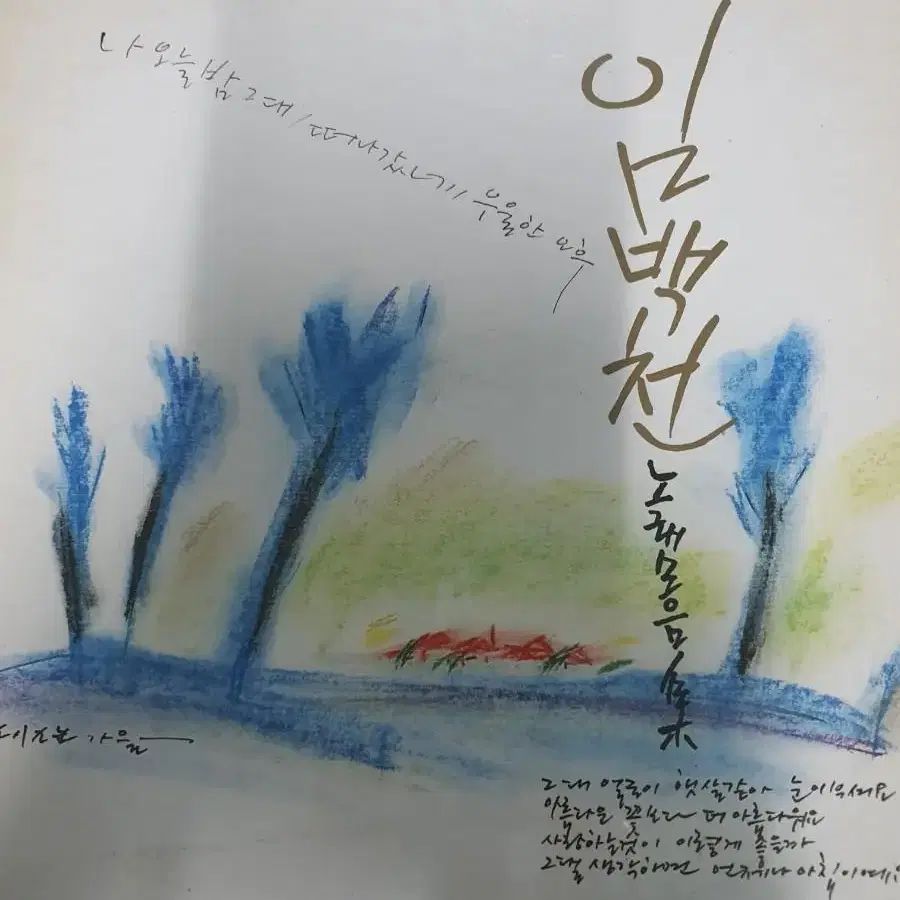 나 오늘밤 그대/떠나갔네/우울한 오후
임백천
노래모음集
가을
그대 얼굴이 햇살같아 눈이 부셔요
아름다운 꽃보다 더 아름다워요
사랑하는 것이 이렇게 좋을까
그댈 생각하면 언제나 아침이예요